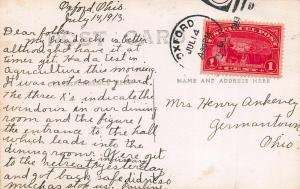 Oxford, Ohio.
July 14, 1913.
Dear Folks,
My headache is better
although I have it at
times yet. Had a test in
agriculture this morning.
It was very hard.
The three X's indicate the
windows in our dining
room and the figure 1
the entrance to the hall
which leads into the
dining room. We went out
to the retreat yesterday
and got back safe.
much as to us. Pauline
OXFORD
JUL 14
U.S. PARCEL POST
1 1
NAME AND ADDRESS HERE
Mrs Henry Ankeney
Germantown
Ohio